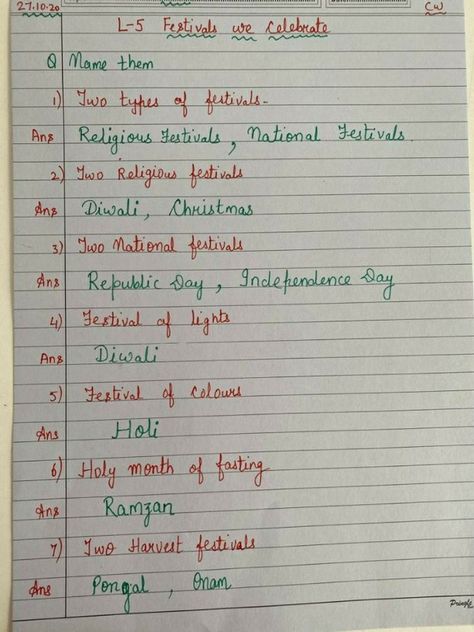 27.10.20 CW
L-5 Festivals we Celebrate
Q Name them
1) Two types of festivals.
Ans Religious Festivals, National Festivals.
2) Two Religious festivals
Ans Diwali, Christmas
3) Two National festivals
Ans Republic Day, Independence Day
4) Festival of lights
Ans Diwali
5) Festival of colours
Ans Holi
6) Holy month of fasting
Ans Ramzan
7) Two Harvest festivals
Ans Pongal, Onam